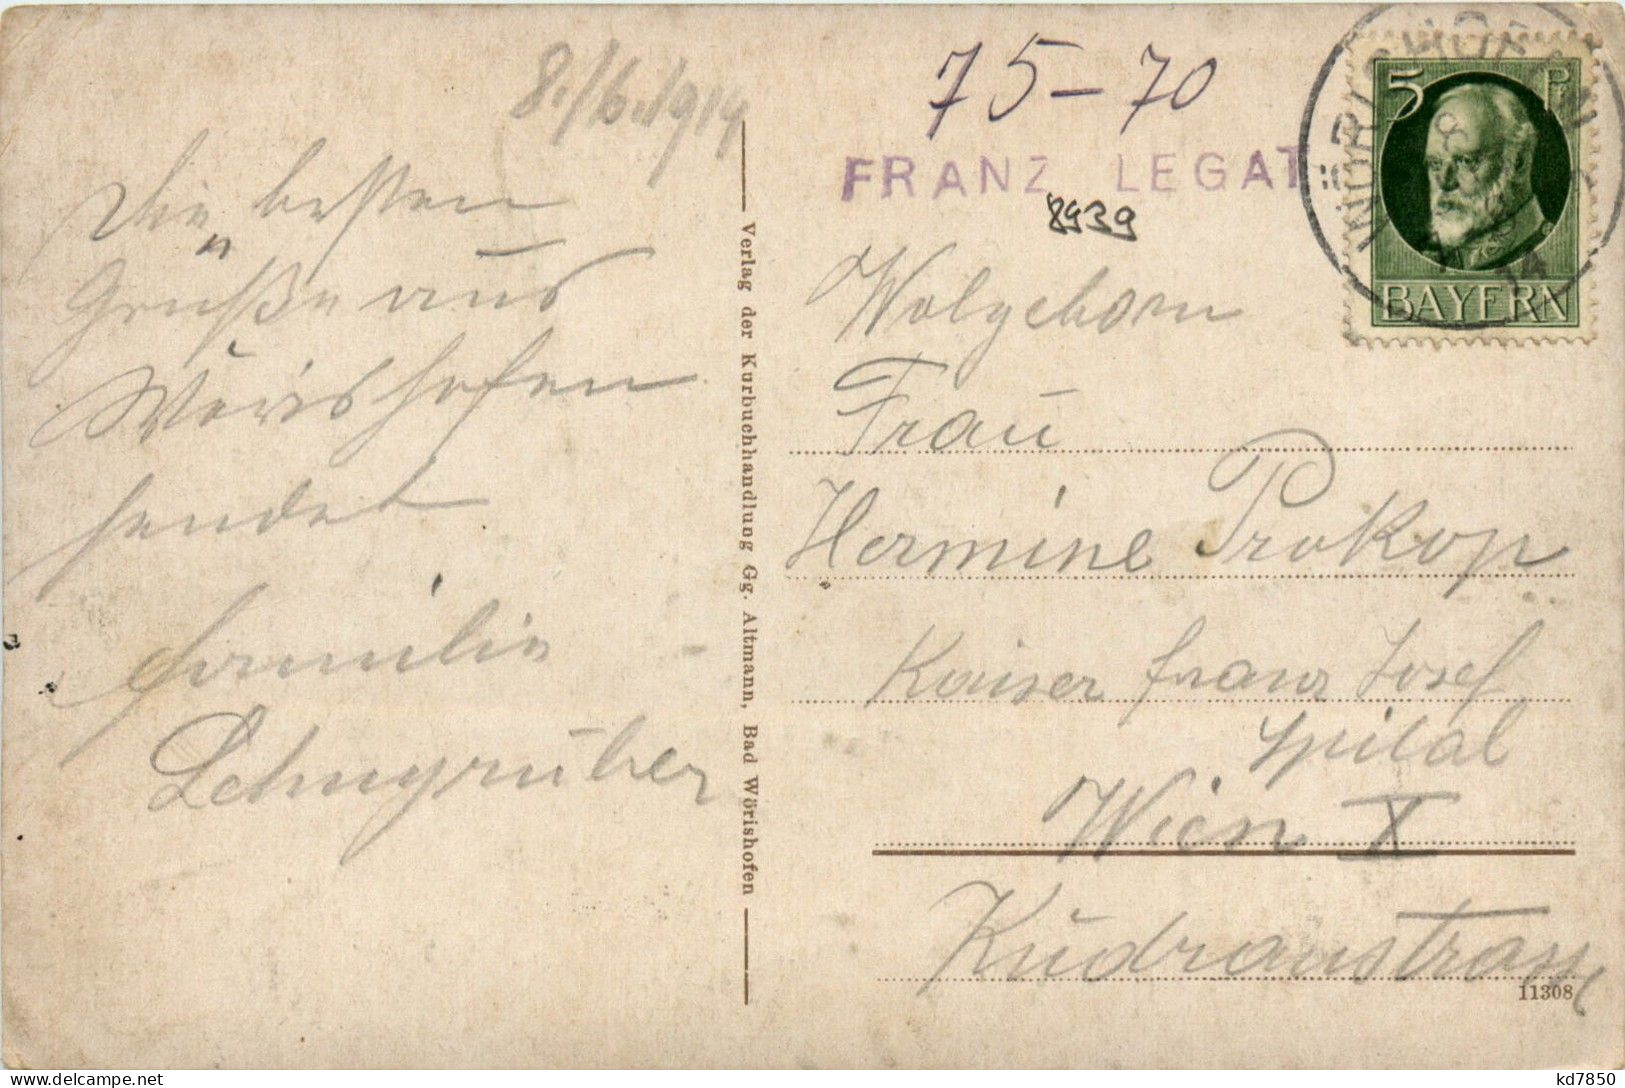 8./6.1914
Die besten
Grüße aus
Wörishofen
sendet
Familie
Lehngruber
Verlag der Kurbuchhandlung Gg. Altmann, Bad Wörishofen
75-70
FRANZ LEGAT
8939
5 P
BAYERN
WÖRISHOFEN
8
14
Wolgeborn
Frau
Hermine Prokop
Kaiser Franz Josef
Spital
Wien X
Kudranstrasse
11308
delcampe.net
kd7850